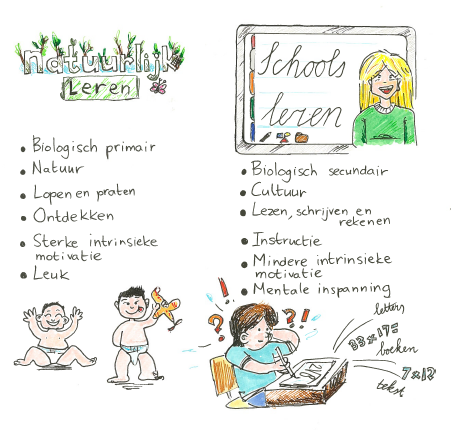 Natuurlijk
Leren
• Biologisch primair
• Natuur
• Lopen en praten
• Ontdekken
• Sterke intrinsieke
motivatie
• Leuk
Schools
leren
• Biologisch secundair
• Cultuur
• Lezen, schrijven en
rekenen
• Instructie
• Mindere intrinsieke
motivatie
• Mentale inspanning
? ! ?!
letters
33x17=
boeken
7x1?
tekst